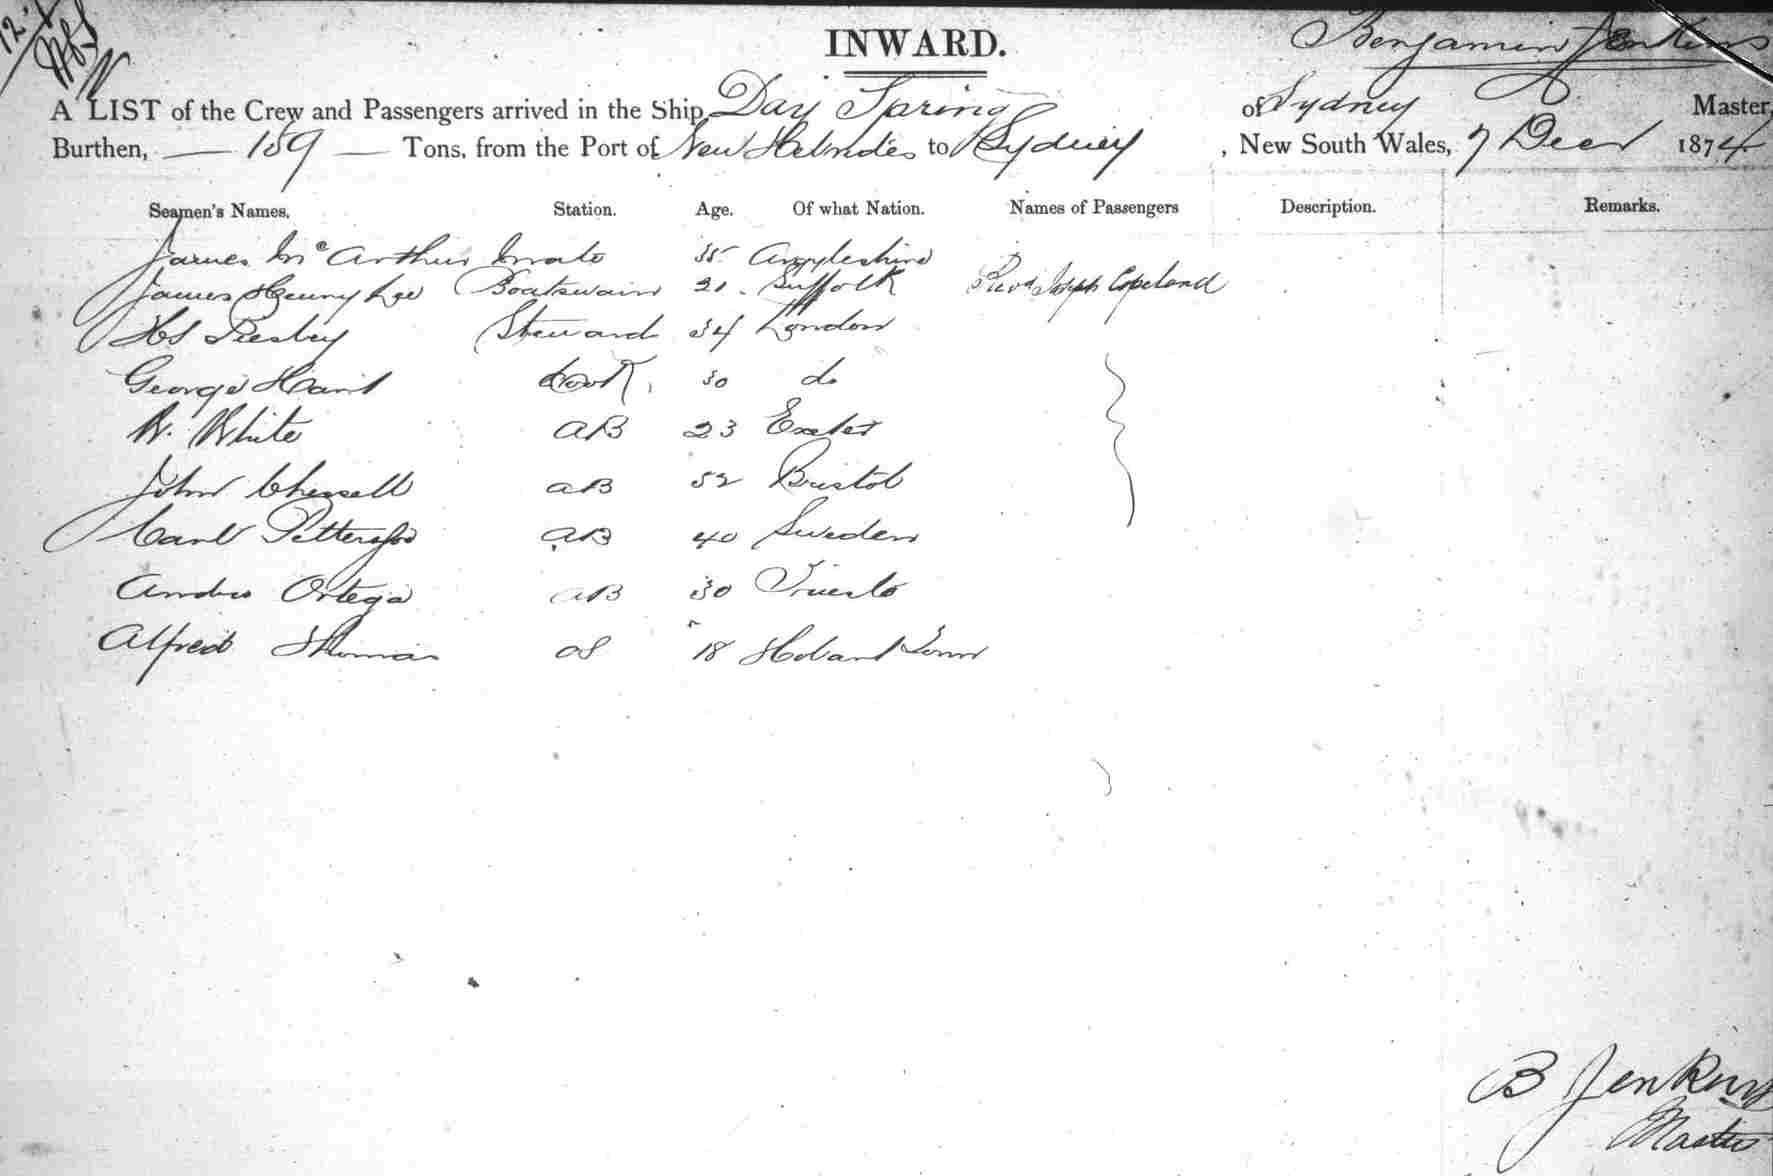 INWARD.
Benjamin Jenkins
A LIST of the Crew and Passengers arrived in the Ship Day Spring of Sydney Master,
Burthen, — 159 — Tons, from the Port of New Hebrides to Sydney, New South Wales, 7 Decr 1874
Seamen's Names. Station. Age. Of what Nation. Names of Passengers Description. Remarks.
James McArthur Mate 35 Argyleshire
James Henry Lee Boatswain 20 Suffolk Revd Joseph Copeland
Steward 34 London
George Cook 30 do
W. White AB 23 Exeter
John AB 52 Bristol
Carl AB 40 Sweden
Ortega AB 30 Trieste
Alfred Thomas OS 18 Hobart Town
B Jenkins
Master